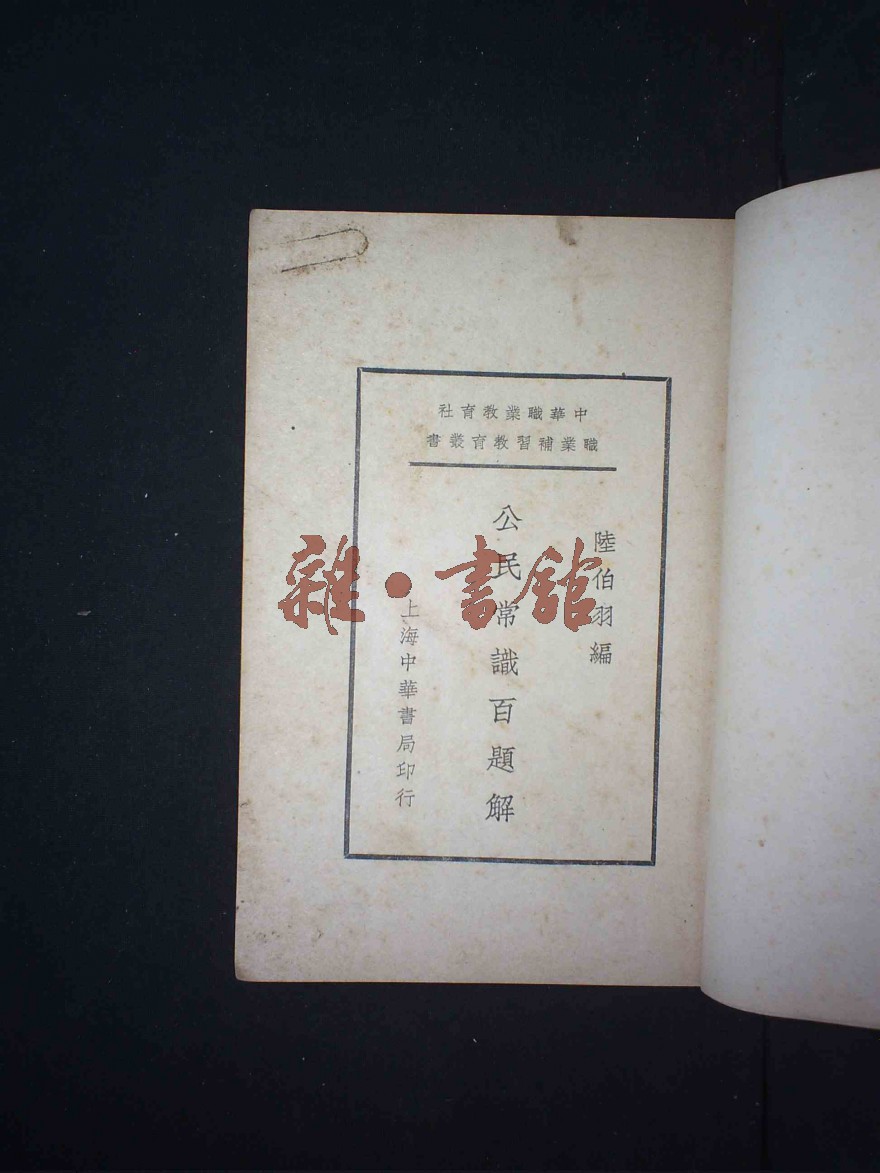 中華職業教育社
職業補習教育叢書
陸伯羽編
公民常識百題解
上海中華書局印行
雜·書舘